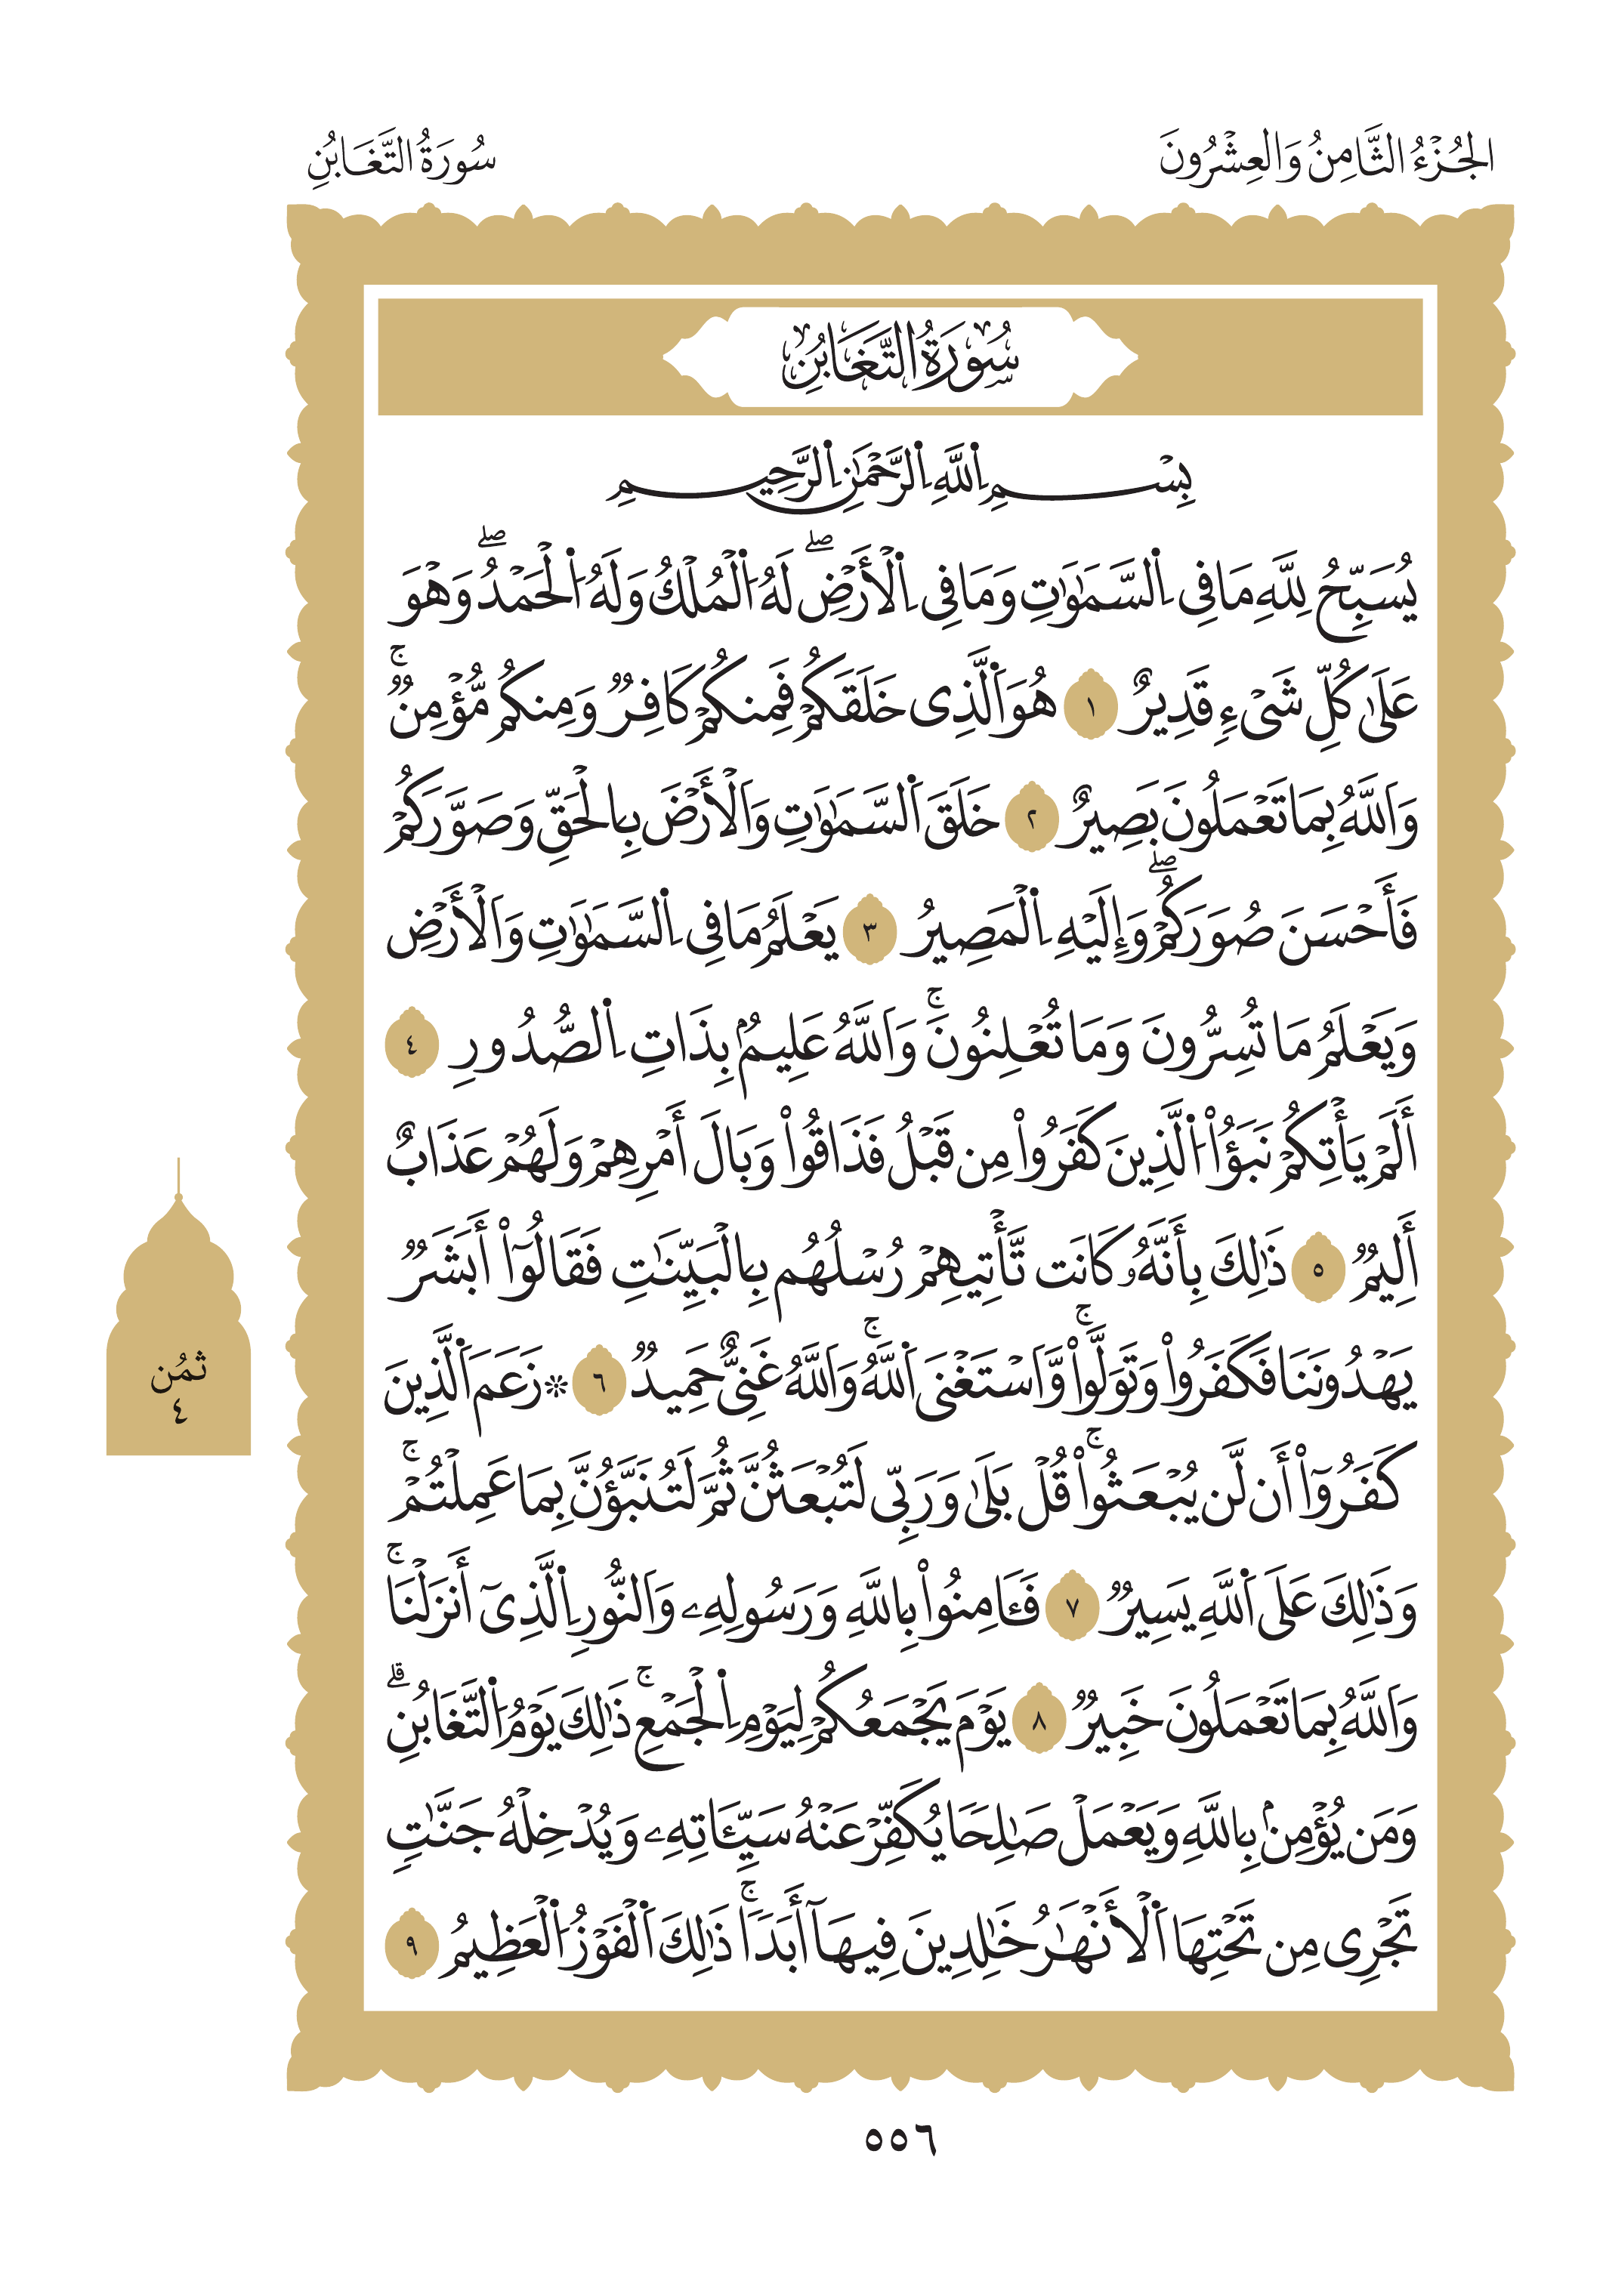 الجُزْءُ الثَّامِنُ وَالعِشْرُونَ
سُورَةُ التَّغَابُنِ
سُورَةُ التَّغَابُنِ
بِسْمِ اِ۬للَّهِ اِ۬لرَّحْمَٰنِ اِ۬لرَّحِيمِ
يُسَبِّحُ لِلَّهِ مَا فِى اِ۬لسَّمَٰوَٰتِ وَمَا فِى اِ۬لْأَرْضِۖ لَهُ اُ۬لْمُلْكُ وَلَهُ اُ۬لْحَمْدُۖ وَهْوَ
عَلَىٰ كُلِّ شَىْءٍ قَدِيرٌ ١ هُوَ اَ۬لَّذِى خَلَقَكُمْ فَمِنكُمْ كَافِرٌ وَمِنكُم مُّؤْمِنٌۚ
وَاَللَّهُ بِمَا تَعْمَلُونَ بَصِيرٌ ٢ خَلَقَ اَ۬لسَّمَٰوَٰتِ وَالْأَرْضَ بِالْحَقِّ وَصَوَّرَكُمْ
فَأَحْسَنَ صُوَرَكُمْۖ وَإِلَيْهِ اِ۬لْمَصِيرُ ٣ يَعْلَمُ مَا فِى اِ۬لسَّمَٰوَٰتِ وَالْأَرْضِ
وَيَعْلَمُ مَا تُسِرُّونَ وَمَا تُعْلِنُونَۚ وَاَللَّهُ عَلِيمٌۢ بِذَاتِ اِ۬لصُّدُورِ ٤
أَلَمْ يَأْتِكُمْ نَبَؤُاْ اُ۬لَّذِينَ كَفَرُواْ مِن قَبْلُ فَذَاقُواْ وَبَالَ أَمْرِهِمْ وَلَهُمْ عَذَابٌ
أَلِيمٌ ٥ ذَٰلِكَ بِأَنَّهُۥ كَانَت تَّأْتِيهِمْ رُسْلُهُم بِالْبَيِّنَٰتِ فَقَالُوٓاْ أَبَشَرٌ
يَهْدُونَنَا فَكَفَرُواْ وَتَوَلَّواْۚ وَّاسْتَغْنَى اَ۬للَّهُۚ وَاَللَّهُ غَنِىٌّ حَمِيدٌ ٦ ۞ زَعَمَ اَ۬لَّذِينَ
كَفَرُوٓاْ أَن لَّن يُبْعَثُواْۚ قُلْ بَلَىٰ وَرَبِّى لَتُبْعَثُنَّ ثُمَّ لَتُنَبَّؤُنَّ بِمَا عَمِلْتُمْۚ
وَذَٰلِكَ عَلَى اَ۬للَّهِ يَسِيرٌ ٧ فَـَٔامِنُواْ بِاللَّهِ وَرَسُولِهِۦ وَالنُّورِ اِ۬لَّذِىٓ أَنزَلْنَاۚ
وَاَللَّهُ بِمَا تَعْمَلُونَ خَبِيرٌ ٨ يَوْمَ يَجْمَعُكُمْ لِيَوْمِ اِ۬لْجَمْعِۚ ذَٰلِكَ يَوْمُ اُ۬لتَّغَابُنِۗ
وَمَن يُؤْمِنۢ بِاللَّهِ وَيَعْمَلْ صَٰلِحًا يُكَفِّرْ عَنْهُ سَيِّـَٔاتِهِۦ وَيُدْخِلْهُ جَنَّٰتٍ
تَجْرِى مِن تَحْتِهَا اَ۬لْأَنْهَٰرُ خَٰلِدِينَ فِيهَآ أَبَدًاۚ ذَٰلِكَ اَ۬لْفَوْزُ اُ۬لْعَظِيمُ ٩
ثمُن
٤
٥٥٦